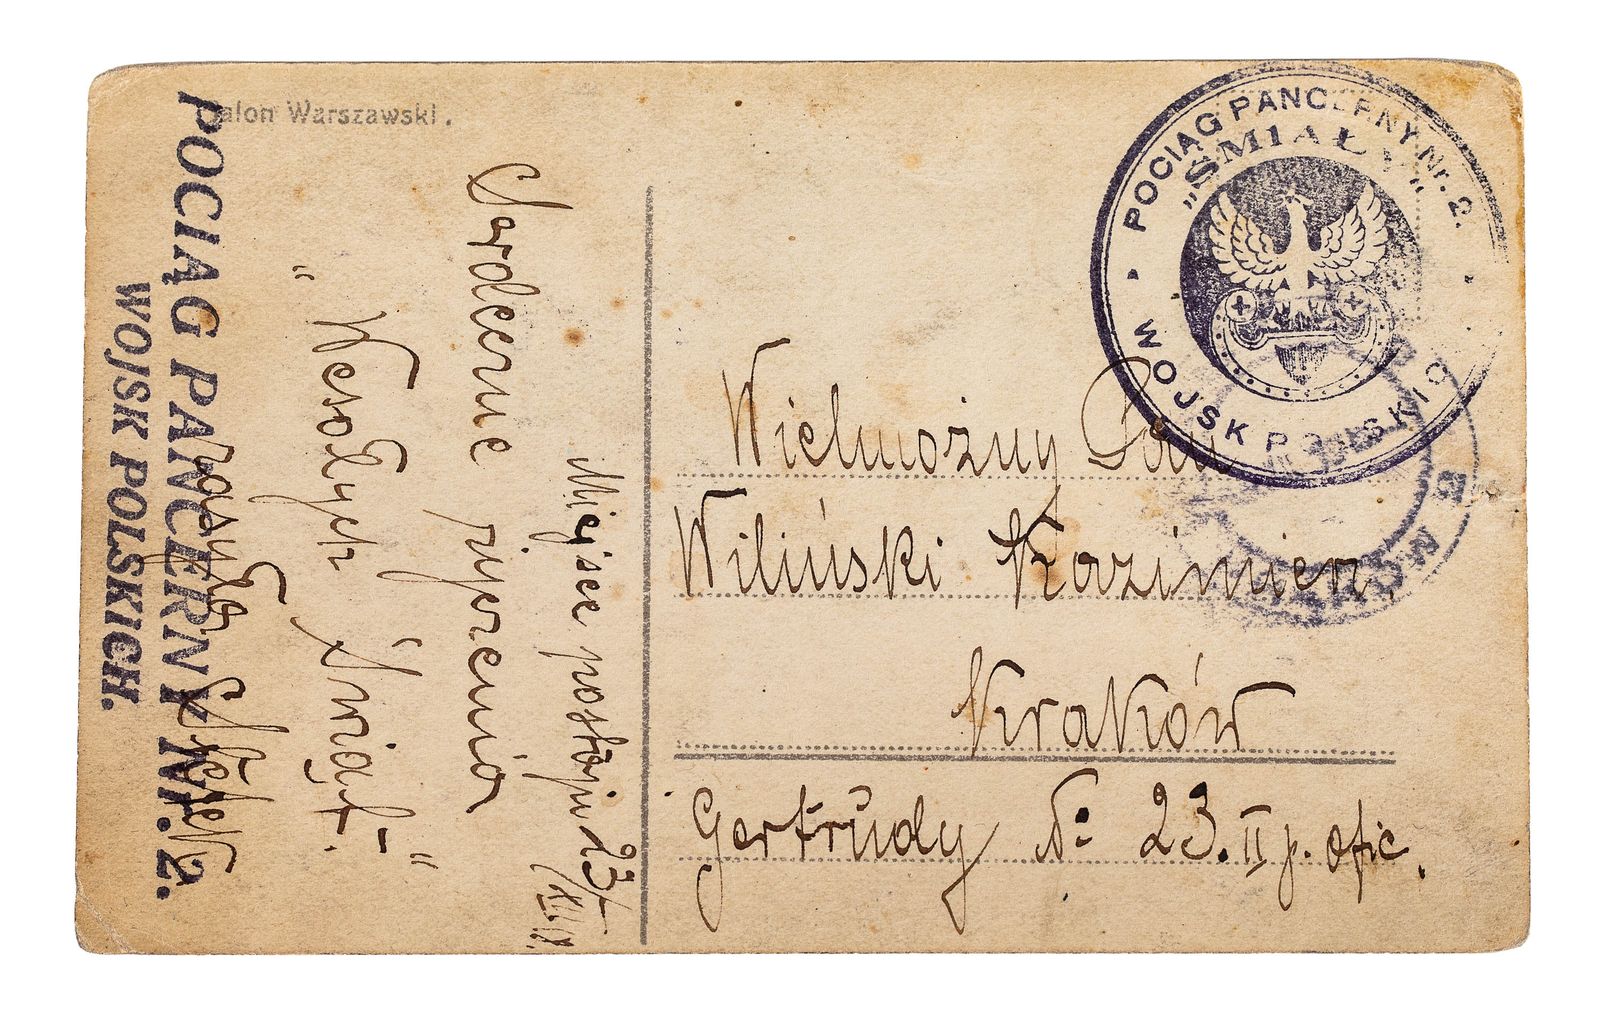 Salon Warszawski.
POCIĄG PANCERNY Nr. 2.
WOJSK POLSKICH.
Miejsce postoju 23/XII 19.
Serdeczne życzenia
„Wesołych Świąt"
POCIĄG PANCERNY Nr. 2.
„ŚMIAŁY"
WOJSK POLSKICH
Wielmożny Pan
Wiliński Kazimierz.
Kraków
Gertrudy № 23. II p. ofic.